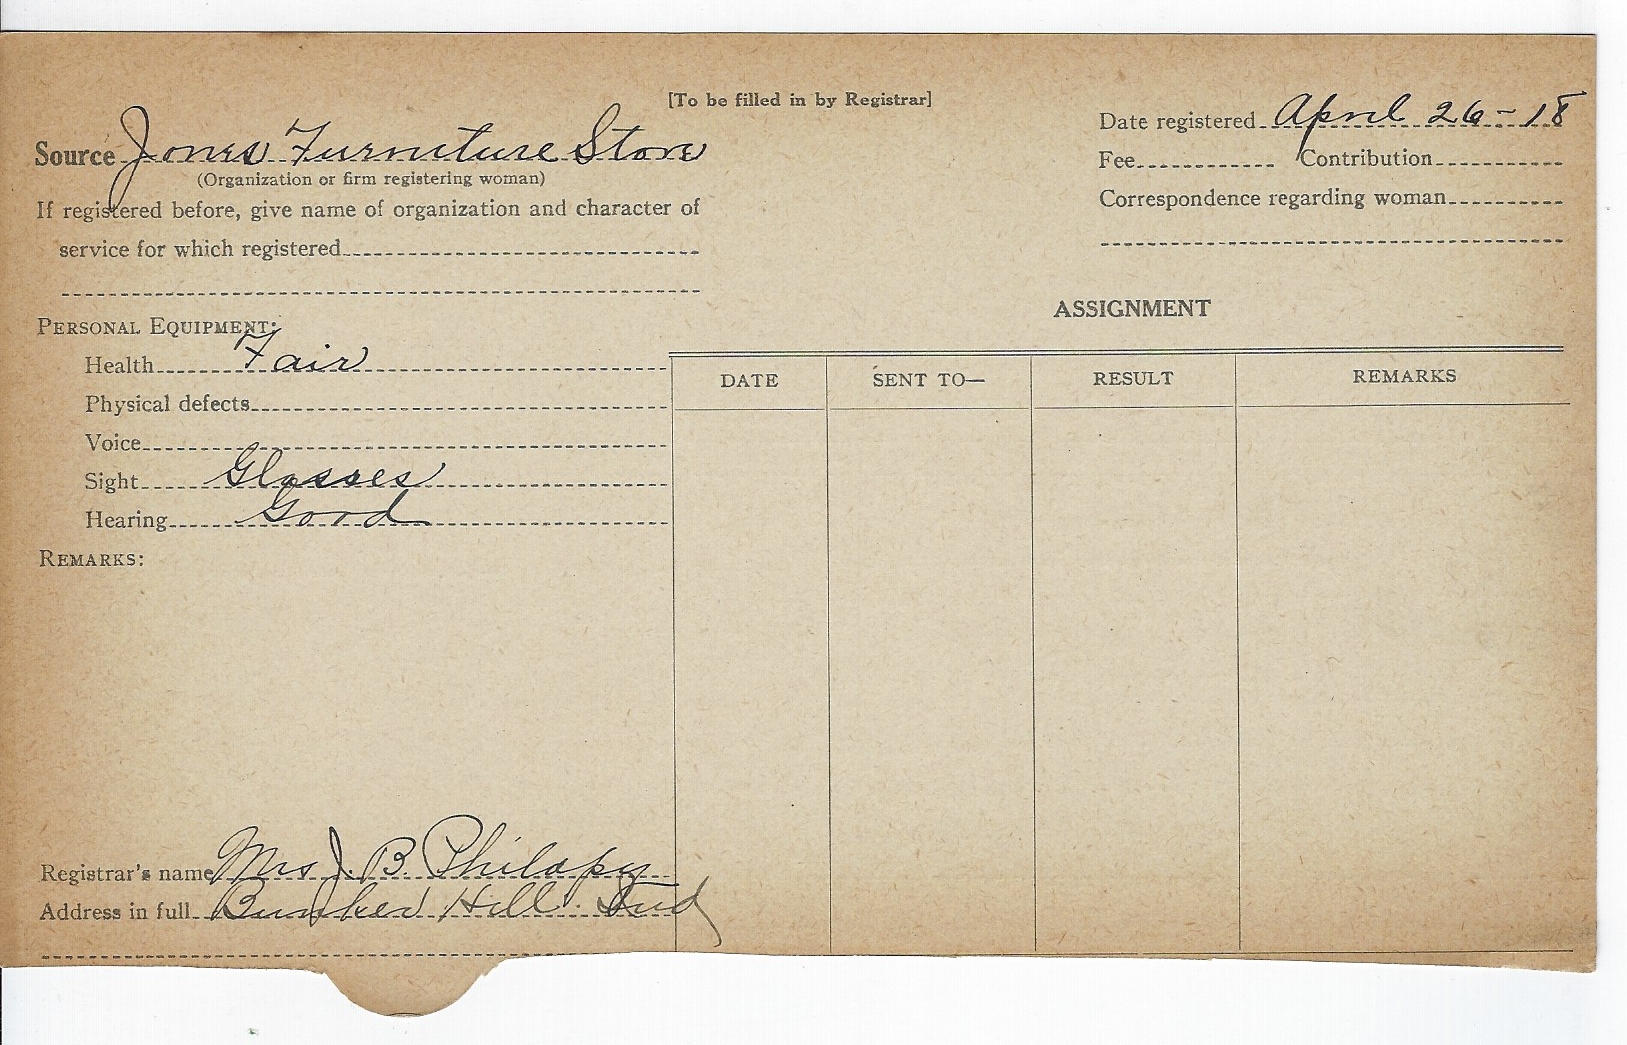 [To be filled in by Registrar]
Source Jones Furniture Store
(Organization or firm registering woman)
If registered before, give name of organization and character of
service for which registered
Date registered April 26-18
Fee Contribution
Correspondence regarding woman
PERSONAL EQUIPMENT:
Health Fair
Physical defects
Voice
Sight Glasses
Hearing Good
REMARKS:
Registrar's name Mrs J. B. Philapy
Address in full Bunker Hill. Ind
ASSIGNMENT
DATE SENT TO— RESULT REMARKS